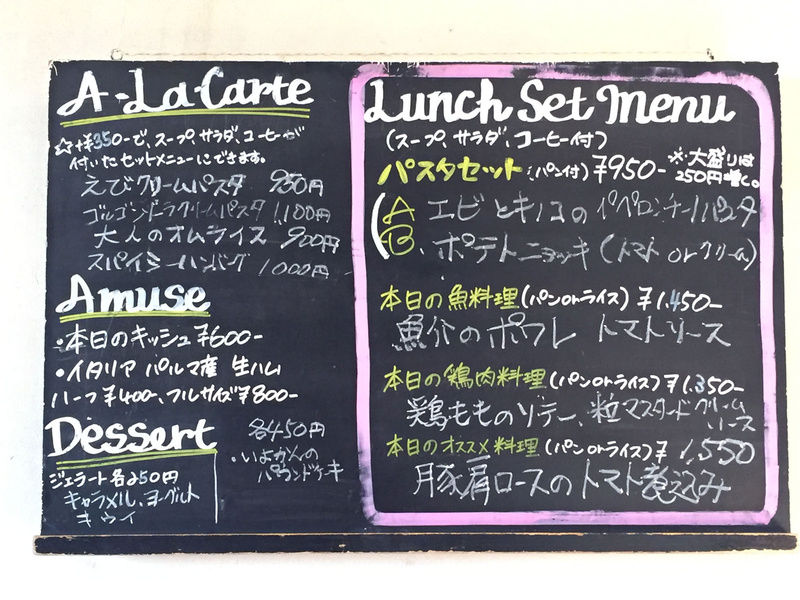 A-La-Carte
☆+¥350-で、スープ、サラダ、コーヒーが
付いたセットメニューにできます。
えびクリームパスタ 950円
ゴルゴンゾラクリームパスタ 1,100円
大人のオムライス 900円
スパイシーハンバーグ 1000円
Amuse
・本日のキッシュ ¥600-
・イタリア パルマ産 生ハム
ハーフ ¥400-、フルサイズ¥800-
Dessert
ジェラート各250円
キャラメル、ヨーグルト
キウイ
各450円
・いよかんの
パウンドケーキ
Lunch Set Menu
(スープ、サラダ、コーヒー付)
パスタセット(パン付) ¥950-
※大盛りは
250円増し。
A エビとキノコのペペロンチーノパスタ
B. ポテトニョッキ(トマト or クリーム)
本日の魚料理(パン or ライス) ¥1.450-
魚介のポワレ トマトソース
本日の鶏肉料理(パン or ライス) ¥1.350-
鶏もものソテー、粒マスタードクリーム
ソース
本日のオススメ料理(パン or ライス) ¥1,550
豚肩ロースのトマト煮込み